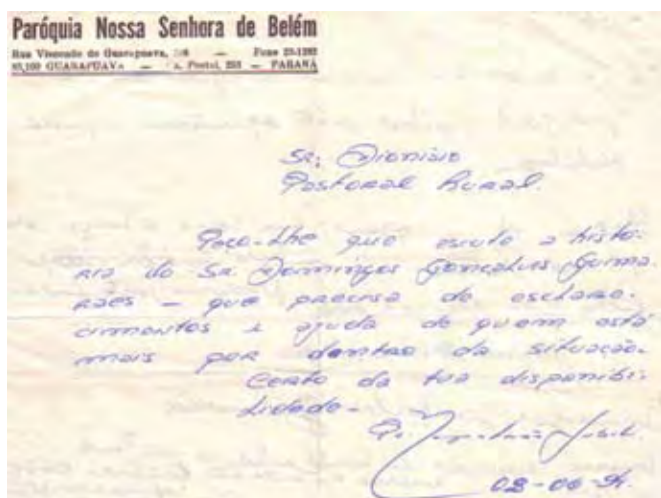 Paróquia Nossa Senhora de Belém
Rua Visconde de Guarapuava, — Fone 23-1282
85,100 GUARAPUAVA — Postal, — PARANÁ
Sr. Dionisio
Pastoral Rural.
Peço-lhe que escute a histo-
ria do Sr. Domingos Gonçalves Guima-
rães - que precisa de esclare-
cimentos e ajuda de quem está
mais por dentro da situação.
Certo da tua disponibi-
lidade.
Pe.